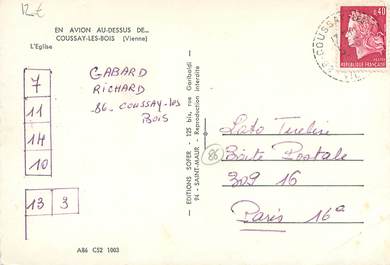 12€
EN AVION AU-DESSUS DE...
COUSSAY-LES-BOIS (Vienne)
L'Eglise
0,40
REPUBLIQUE FRANÇAISE
COUSSAY-LES-
86
7
11
14
10
13 3
GABARD
RICHARD
86-COUSSAY-les
BOIS
EDITIONS SOFER - 125 bis, rue Garibaldi
94 - SAINT-MAUR - Reproduction interdite
86
Loto Tirelire
Boite Postale
309 16
Paris 16e
A86 C52 1003